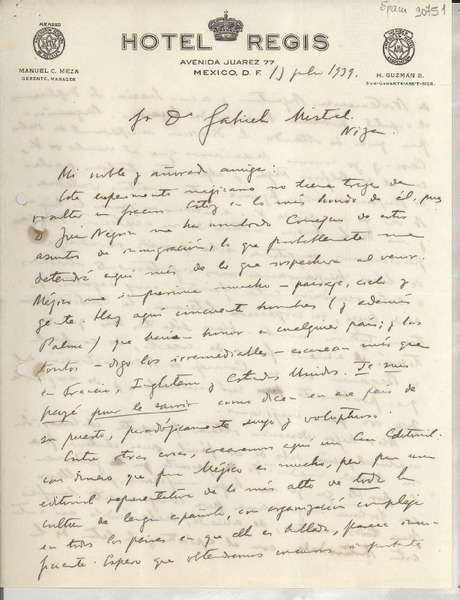 Spain 90751
MEMBER
HOTEL REGIS
AVENIDA JUAREZ 77
MEXICO, D. F.
MANUEL C. MEZA
GERENTE, MANAGER
H. GUZMAN B.
SUB-GERENTE-ASS'T-MGR.
13 julio 1939.
Sr Da Gabriela Mistral.
Niza.
Mi noble y añorada amiga:
Este experimento mejicano no tiene traza de
resultar un fracaso. Estoy en lo más hondo de él, pues
D Juan Negrín me ha nombrado Consejero de estos
asuntos de inmigración, lo que probablemente me
detendrá aquí más de lo que sospechara al venir.
Méjico me impresiona mucho — paisaje, cielo y
gente. Hay aquí cincuenta hombres (y además
Palma) que harían honor a cualquier país; y los
tontos — digo los irremediables — escasean más que
en Francia, Inglaterra y Estados Unidos. Je suis
payé pour le savoir como dicen en ese país de
su puesto, paradójicamente suyo y voluptuoso.
Entre otras cosas, crearemos aquí una Casa Editorial.
con dinero que para Méjico es mucho, pero para una
editorial representativa de lo más alto de toda la
cultura de lengua española, con organización compleja
en todos los países en que ella es hablada, parece insu-
ficiente. Espero que obtendremos concursos importantes